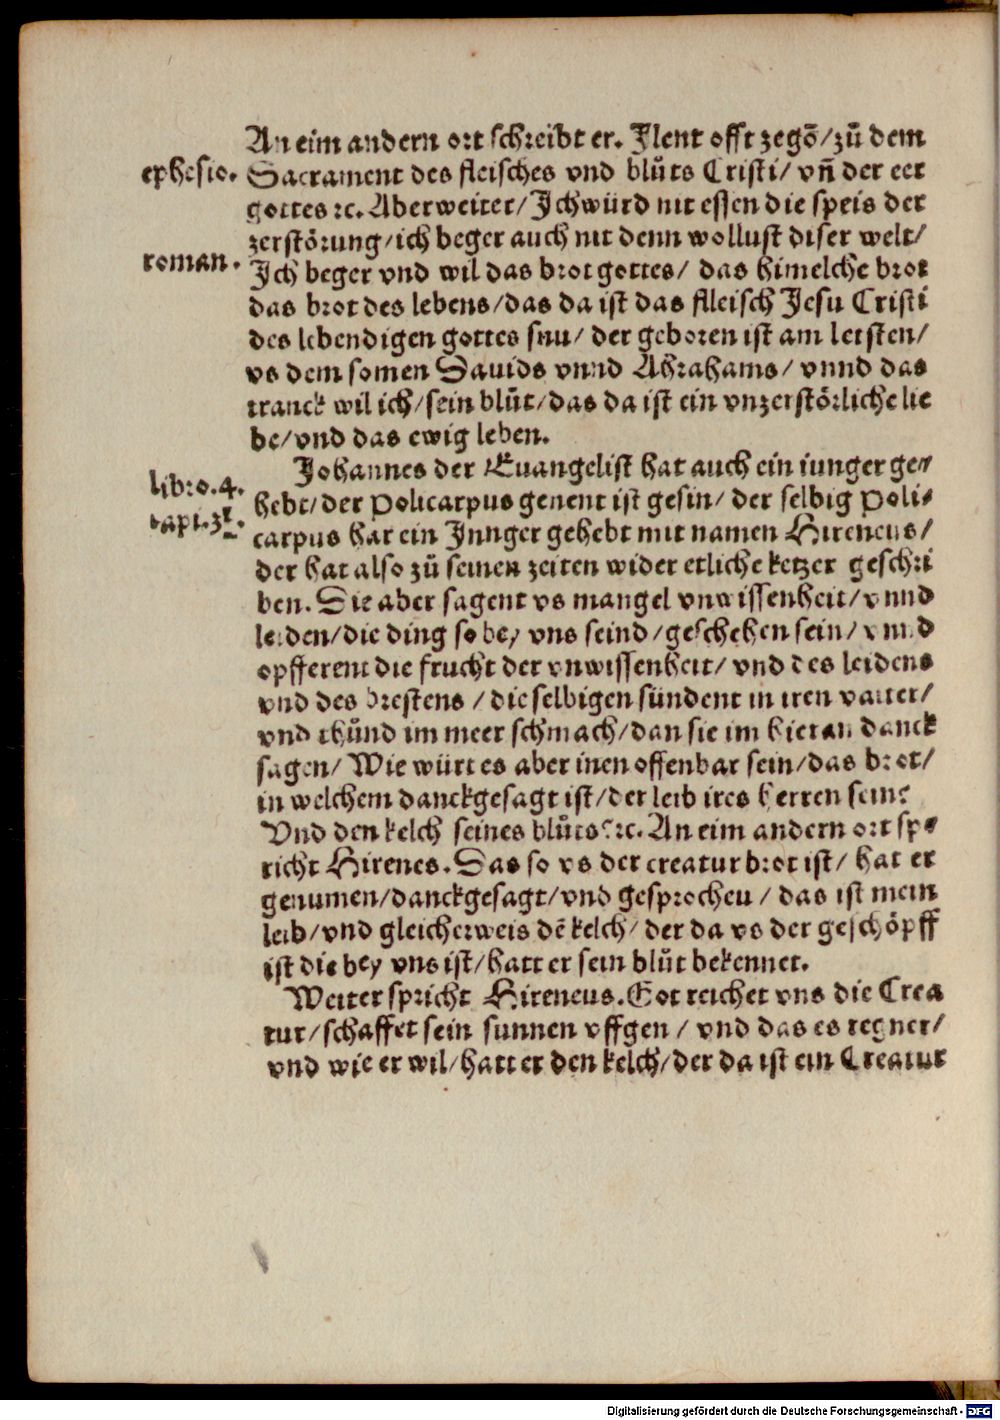 An eim andern ort schreibt er. Ilent offt zegō/zů dem
ephesio.
Sacrament des fleisches vnd blůts Cristi/ vñ der eer
gottes ꝛc. Aber weiter/ Ich würd nit essen die speis der
zerstörung/ich beger auch nit denn wollust diser welt/
roman.
Ich beger vnd wil das brot gottes/ das himelche brot
das brot des lebens/das da ist das flleisch Jesu Cristi
des lebendigen gottes snu/ der geboren ist am letsten/
vs dem somen Dauids vnnd Abrahams/ vnnd das
tranck wil ich/sein blůt/das da ist ein vnzerstörliche lie
be/vnd das ewig leben.
Johannes der Euangelist hat auch ein iunger ge⸗
libro.4.
hebt/der Policarpus genent ist gesin/ der selbig Poli⸗
capt.
carpus har ein Jnnger gehebt mit namen Hireneus/
der hat also zů seinen zeiten wider etliche ketzer geschri
ben. Die aber sagent vs mangel vnwissenheit/vnnd
leiden/die ding so bey vns seind/geschehen sein/vnnd
opfferent die frucht der vnwissenheit/ vnd des leidens
vnd des brestens /die selbigen sündent in iren vatter/
vnd thůnd im meer schmach/dan sie im hieran danck
sagen/ Wie würt es aber inen offenbar sein/das brot/
in welchem danckgesagt ist/der leib ires herren seins
Vnd den kelch seines blůts ꝛc. An eim andern ort sp⸗
richt Hirenes. Das so vs der creatur brot ist/ hat er
genumen/danckgesagt/vnd gesprocheu/ das ist mein
leib/vnd gleicherweis dē kelch/ der da vs der geschöpff
ist die bey vns ist/hatt er sein blůt bekennet.
Weiter spricht Hireneus. Got reichet vns die Crea
tur/schaffet sein sunnen vffgen/ vnd das es regnet/
vnd wie er wil/hatt er den kelch/der da ist ein Creatur
Digitalisierung gefördert durch die Deutsche Forschungsgemeinschaft - DFG